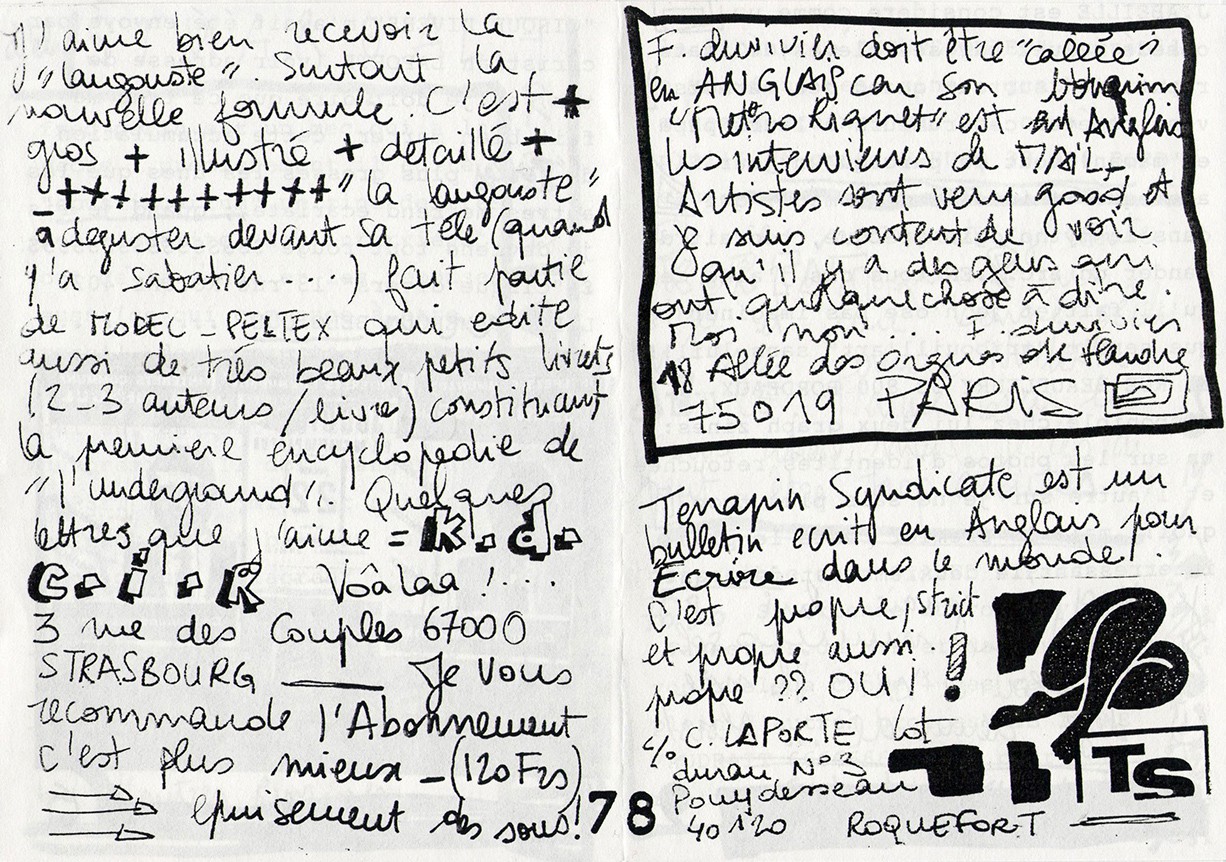 J'aime bien recevoir la
"langouste". Surtout la
nouvelle formule C'est +
gros + illustré + détaillé +
+++++++++++ "la langouste"
à déguster devant sa télé (quand
y'a sabatier...) fait partie
de MODEO PELTEX qui edite
aussi de très beaux petits livrets
(2-3 auteurs / livre) constituant
la premiere encyclopedie de
"l'underground". Quelques
lettres que j'aime = K.d.
C.i.R Voâlaa !...
3 rue des Couples 67000
STRASBOURG Je vous
recommande l'Abonnement
c'est plus mieux - (120 Frs)
epuisement des sous!
7
F duvivier doit être "calée"
en ANGLAIS car son bouquin
est en Anglais
Les interviews de MAIL
Artistes sont very good et
suis content de voir
qu'il y a des gens qui
ont quelque chose à dire.
Moi non! F duvivier
18 Allée des orgues de flandre
75019 PARIS
Terrapin Syndicate est un
bulletin ecrit en Anglais pour
Ecrire dans le monde!
C'est propre, strict
et propre aussi.
propre ?? OUI !
c/o C. LAPORTE Lot
duran N°3
Pouydesseau
40120 ROQUEFORT
TS
8